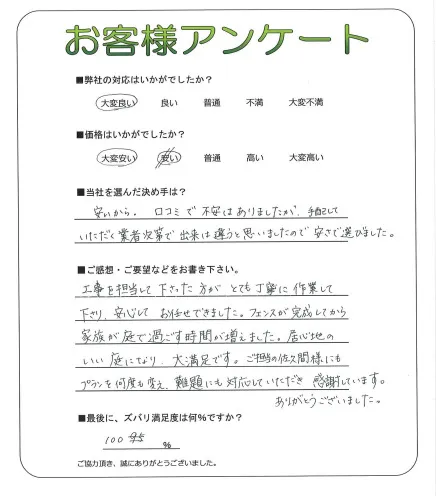 お客様アンケート
■弊社の対応はいかがでしたか？
大変良い 良い 普通 不満 大変不満
■価格はいかがでしたか？
大変安い 安い 普通 高い 大変高い
■当社を選んだ決め手は？
安いから。口コミで不安はありましたが、担当して
いただく業者次第で出来は違うと思いましたので安さで選びました。
■ご感想・ご要望などをお書き下さい。
工事を担当して下さった方がとても丁寧に作業して
下さり、安心してお任せできました。フェンスが完成してから
家族が庭で過ごす時間が増えました。居心地の
いい庭になり、大満足です。ご担当の佐久間様にも
プランを何度も変え、難題にも対応していただき感謝しています。
ありがとうございました。
■最後に、ズバリ満足度は何%ですか？
100 %
ご協力頂き、誠にありがとうございました。